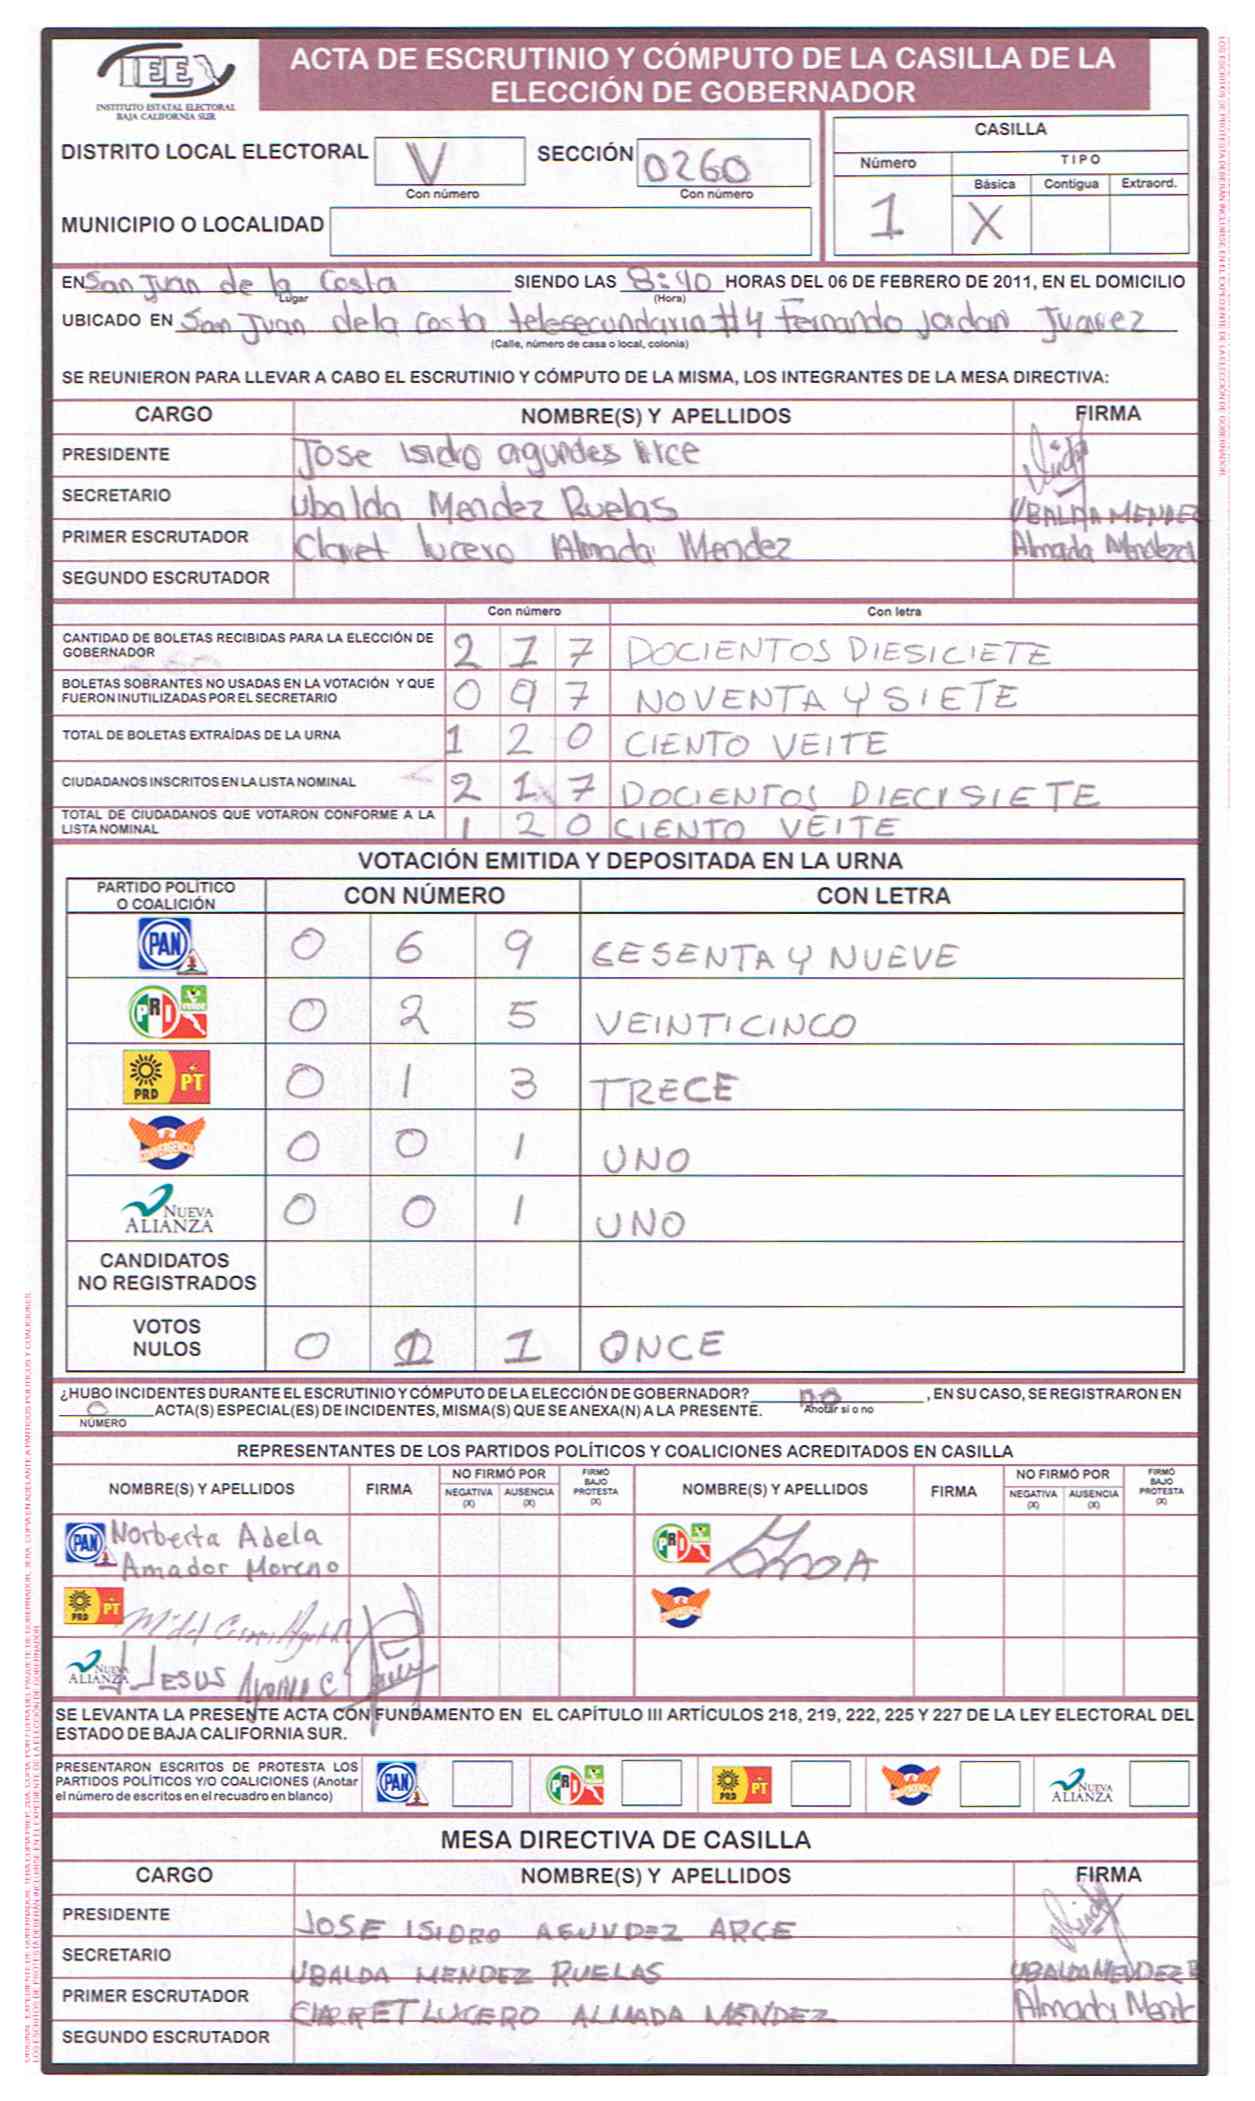 IEE
INSTITUTO ESTATAL ELECTORAL
BAJA CALIFORNIA SUR
ACTA DE ESCRUTINIO Y CÓMPUTO DE LA CASILLA DE LA
ELECCIÓN DE GOBERNADOR
DISTRITO LOCAL ELECTORAL V SECCIÓN 0260
Con número Con número
MUNICIPIO O LOCALIDAD
CASILLA
Número TIPO
Básica Contigua Extraord.
1 X
EN San Juan de la Costa SIENDO LAS 8:40 HORAS DEL 06 DE FEBRERO DE 2011, EN EL DOMICILIO
Lugar (Hora)
UBICADO EN San Juan dela Costa telesecundaria #4 Fernando Jordan Juarez
(Calle, número de casa o local, colonia)
SE REUNIERON PARA LLEVAR A CABO EL ESCRUTINIO Y CÓMPUTO DE LA MISMA, LOS INTEGRANTES DE LA MESA DIRECTIVA:
CARGO NOMBRE(S) Y APELLIDOS FIRMA
PRESIDENTE Jose Isidro agundes Arce
SECRETARIO Ubalda Mendez Ruelas UBALDA MENDEZ
PRIMER ESCRUTADOR Claret lucero Almada Mendez Almada Mendez
SEGUNDO ESCRUTADOR
Con número Con letra
CANTIDAD DE BOLETAS RECIBIDAS PARA LA ELECCIÓN DE
GOBERNADOR 2 1 7 DOCIENTOS DIESICIETE
BOLETAS SOBRANTES NO USADAS EN LA VOTACIÓN Y QUE
FUERON INUTILIZADAS POR EL SECRETARIO 0 9 7 NOVENTA Y SIETE
TOTAL DE BOLETAS EXTRAÍDAS DE LA URNA 1 2 0 CIENTO VEITE
CIUDADANOS INSCRITOS EN LA LISTA NOMINAL 2 1 7 DOCIENTOS DIECISIETE
TOTAL DE CIUDADANOS QUE VOTARON CONFORME A LA
LISTA NOMINAL 1 2 0 CIENTO VEITE
VOTACIÓN EMITIDA Y DEPOSITADA EN LA URNA
PARTIDO POLÍTICO
O COALICIÓN CON NÚMERO CON LETRA
PAN 0 6 9 CESENTA Y NUEVE
PRI 0 2 5 VEINTICINCO
PRD PT 0 1 3 TRECE
CONVERGENCIA 0 0 1 UNO
NUEVA ALIANZA 0 0 1 UNO
CANDIDATOS
NO REGISTRADOS
VOTOS
NULOS 0 1 1 ONCE
¿HUBO INCIDENTES DURANTE EL ESCRUTINIO Y CÓMPUTO DE LA ELECCIÓN DE GOBERNADOR? no , EN SU CASO, SE REGISTRARON EN
0 ACTA(S) ESPECIAL(ES) DE INCIDENTES, MISMA(S) QUE SE ANEXA(N) A LA PRESENTE. Anotar si o no
NÚMERO
REPRESENTANTES DE LOS PARTIDOS POLÍTICOS Y COALICIONES ACREDITADOS EN CASILLA
NOMBRE(S) Y APELLIDOS FIRMA NO FIRMÓ POR NEGATIVA (X) AUSENCIA (X) FIRMÓ BAJO PROTESTA (X) NOMBRE(S) Y APELLIDOS FIRMA NO FIRMÓ POR NEGATIVA (X) AUSENCIA (X) FIRMÓ BAJO PROTESTA (X)
PAN Norberta Adela PRI
Amador Moreno
PRD PT
NUEVA ALIANZA JESUS
SE LEVANTA LA PRESENTE ACTA CON FUNDAMENTO EN EL CAPÍTULO III ARTÍCULOS 218, 219, 222, 225 Y 227 DE LA LEY ELECTORAL DEL
ESTADO DE BAJA CALIFORNIA SUR.
PRESENTARON ESCRITOS DE PROTESTA LOS
PARTIDOS POLÍTICOS Y/O COALICIONES (Anotar
el número de escritos en el recuadro en blanco)
PAN PRI PRD PT NUEVA ALIANZA
MESA DIRECTIVA DE CASILLA
CARGO NOMBRE(S) Y APELLIDOS FIRMA
PRESIDENTE JOSE ISIDRO AGUNDEZ ARCE
SECRETARIO UBALDA MENDEZ RUELAS UBALDA MENDEZ R
PRIMER ESCRUTADOR CLARET LUCERO ALMADA MENDEZ Almada
SEGUNDO ESCRUTADOR